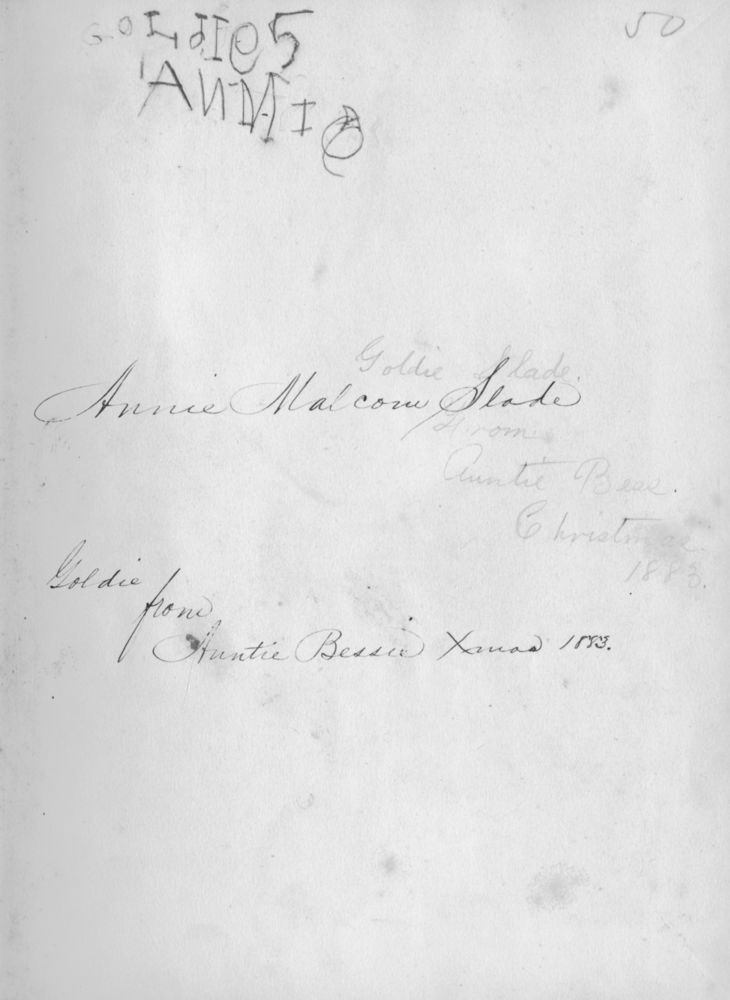 50
GOLdIe5
ANNIe
Goldie Slade.
Annie Malcom Slade
From
Auntie Bess.
Christmas
1883.
Goldie
from
Auntie Bessie Xmas 1883.